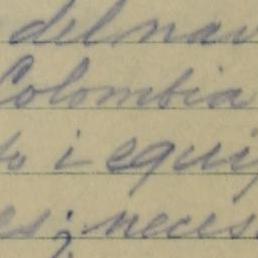 del nav
Colombia
to i equip
es; neces